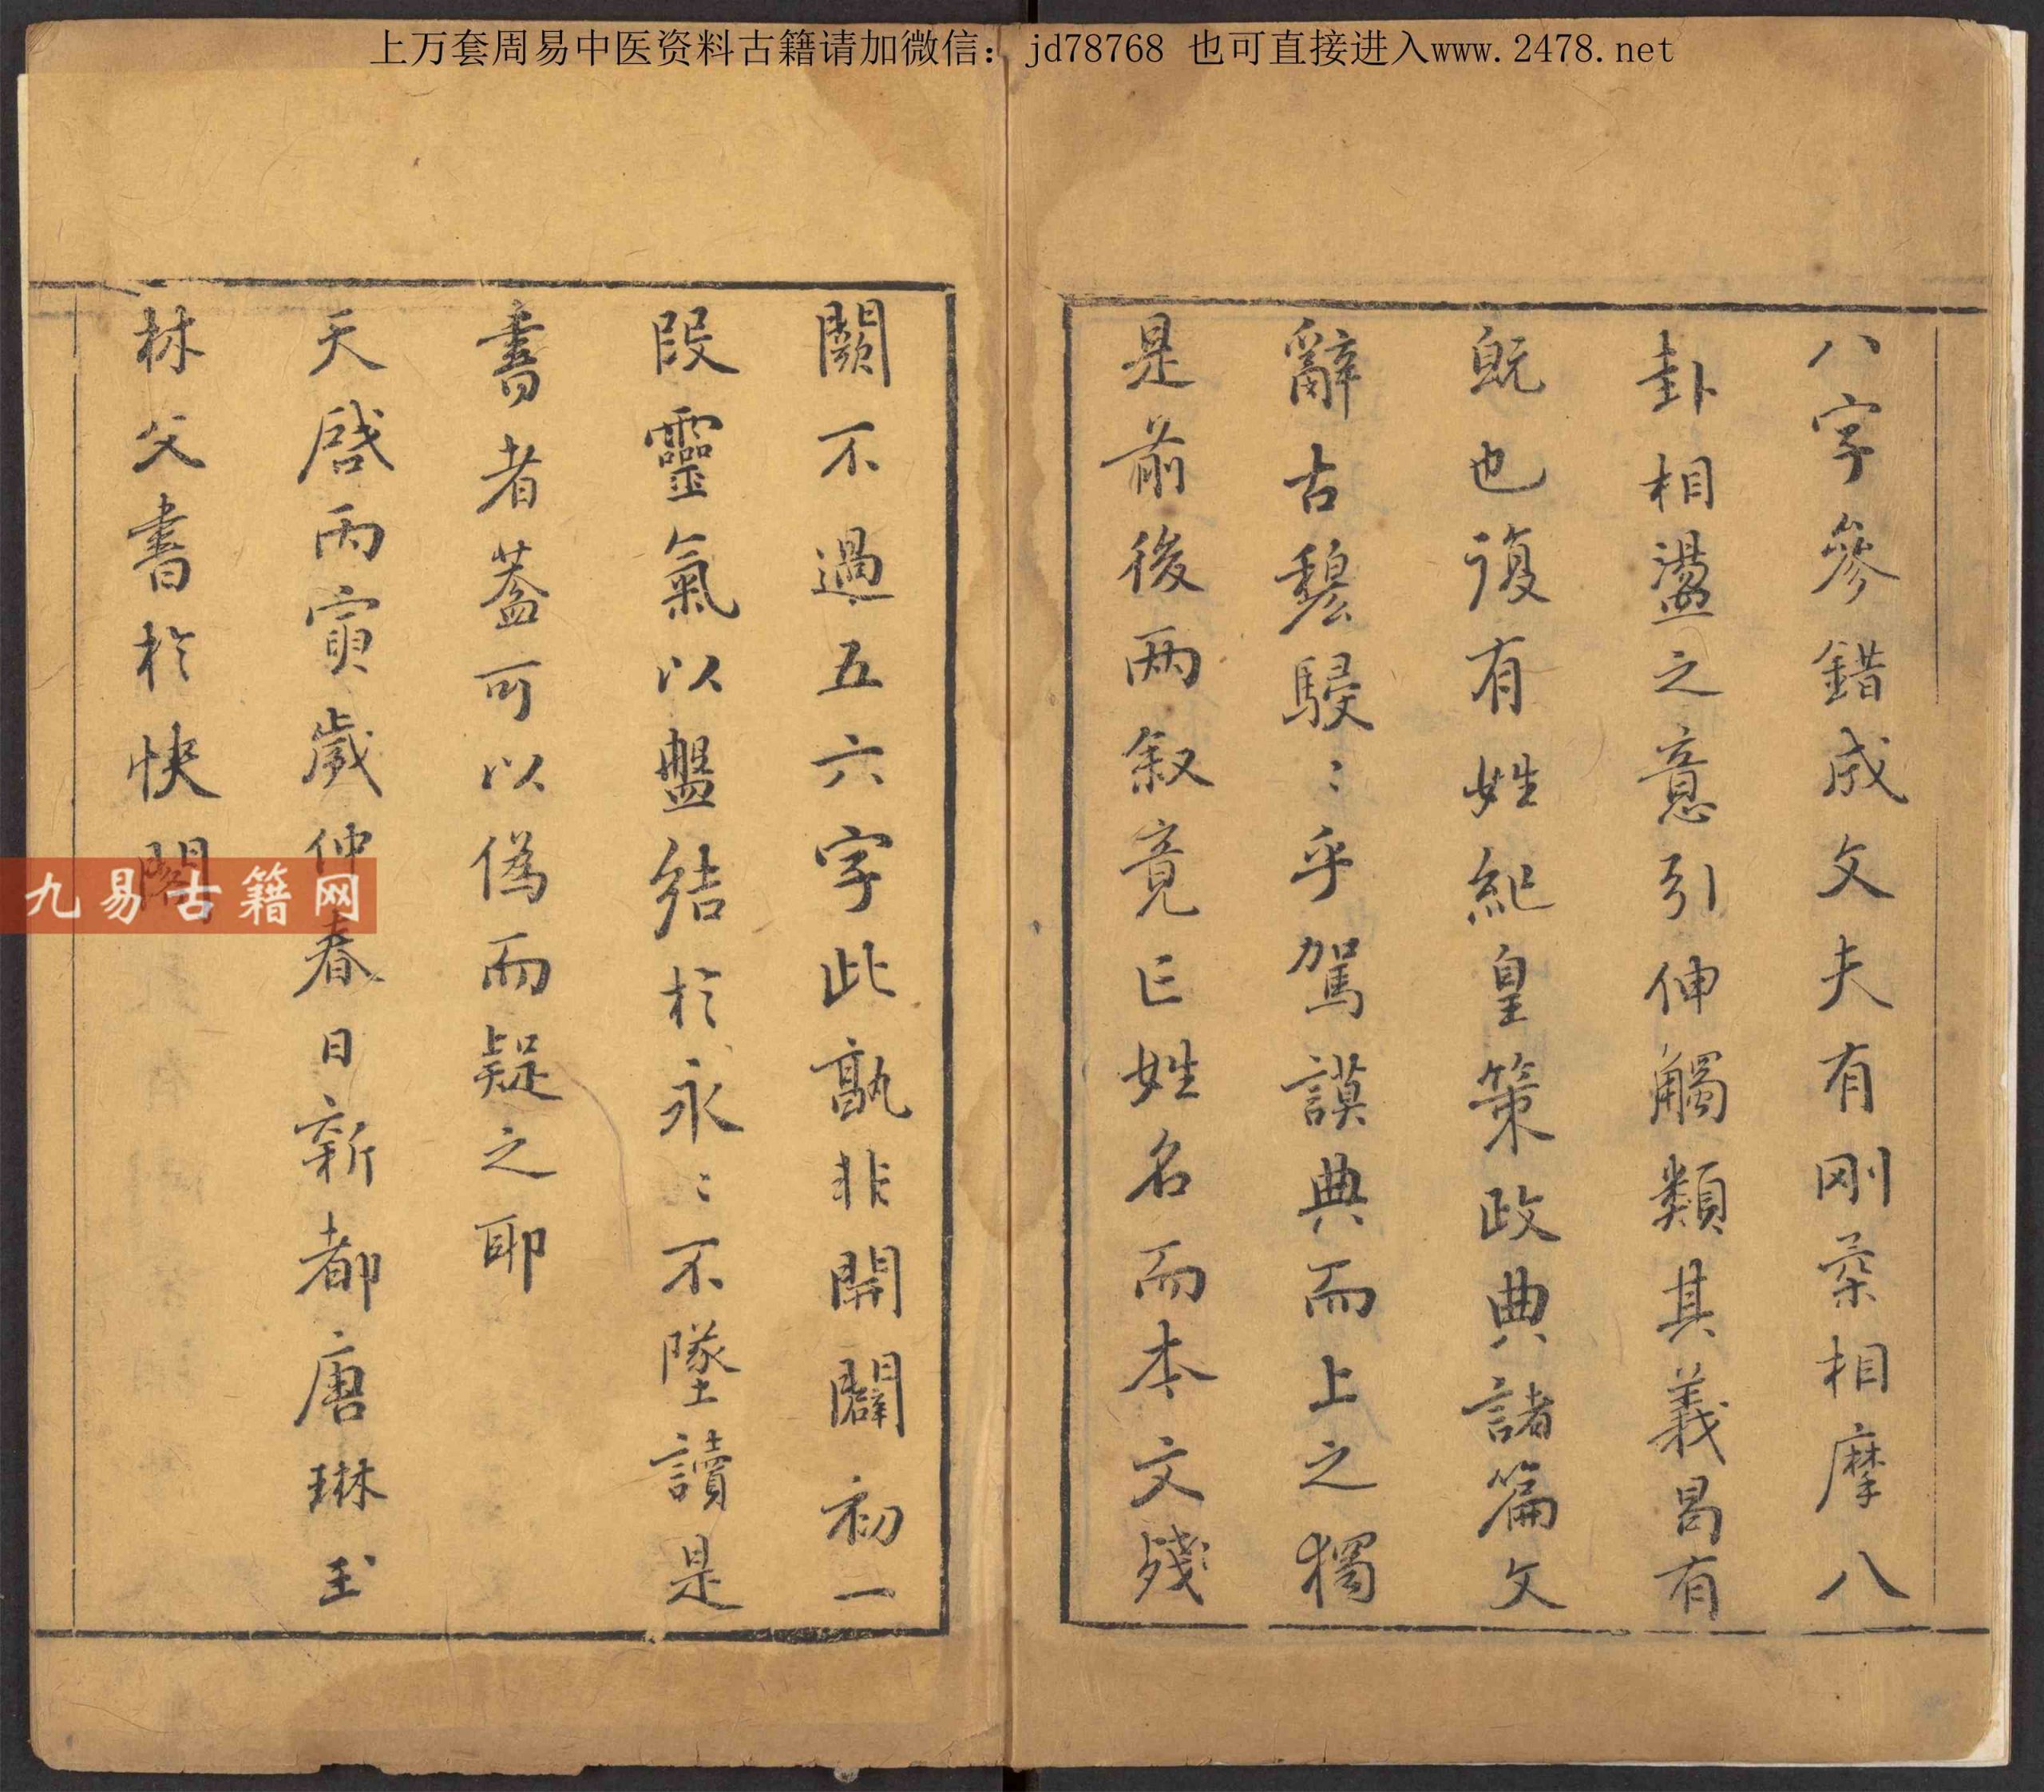 上万套周易中医资料古籍请加微信： jd78768 也可直接进入www.2478.net
八字參錯成文夫有刚柔相摩八
卦相盪之意引伸觸類其義曷有
既也復有姓紀皇策政典諸篇文
辭古穆駸〻乎駕謨典而上之獨
是前後两叙竟亡姓名而本文殘
闕不過五六字此孰非開闢初一
段靈氣以盤結於永〻不墜讀是
書者蓋可以偽而疑之耶
天啓丙寅歲仲春日新都唐琳玉
林父書於快閣
九易古籍网